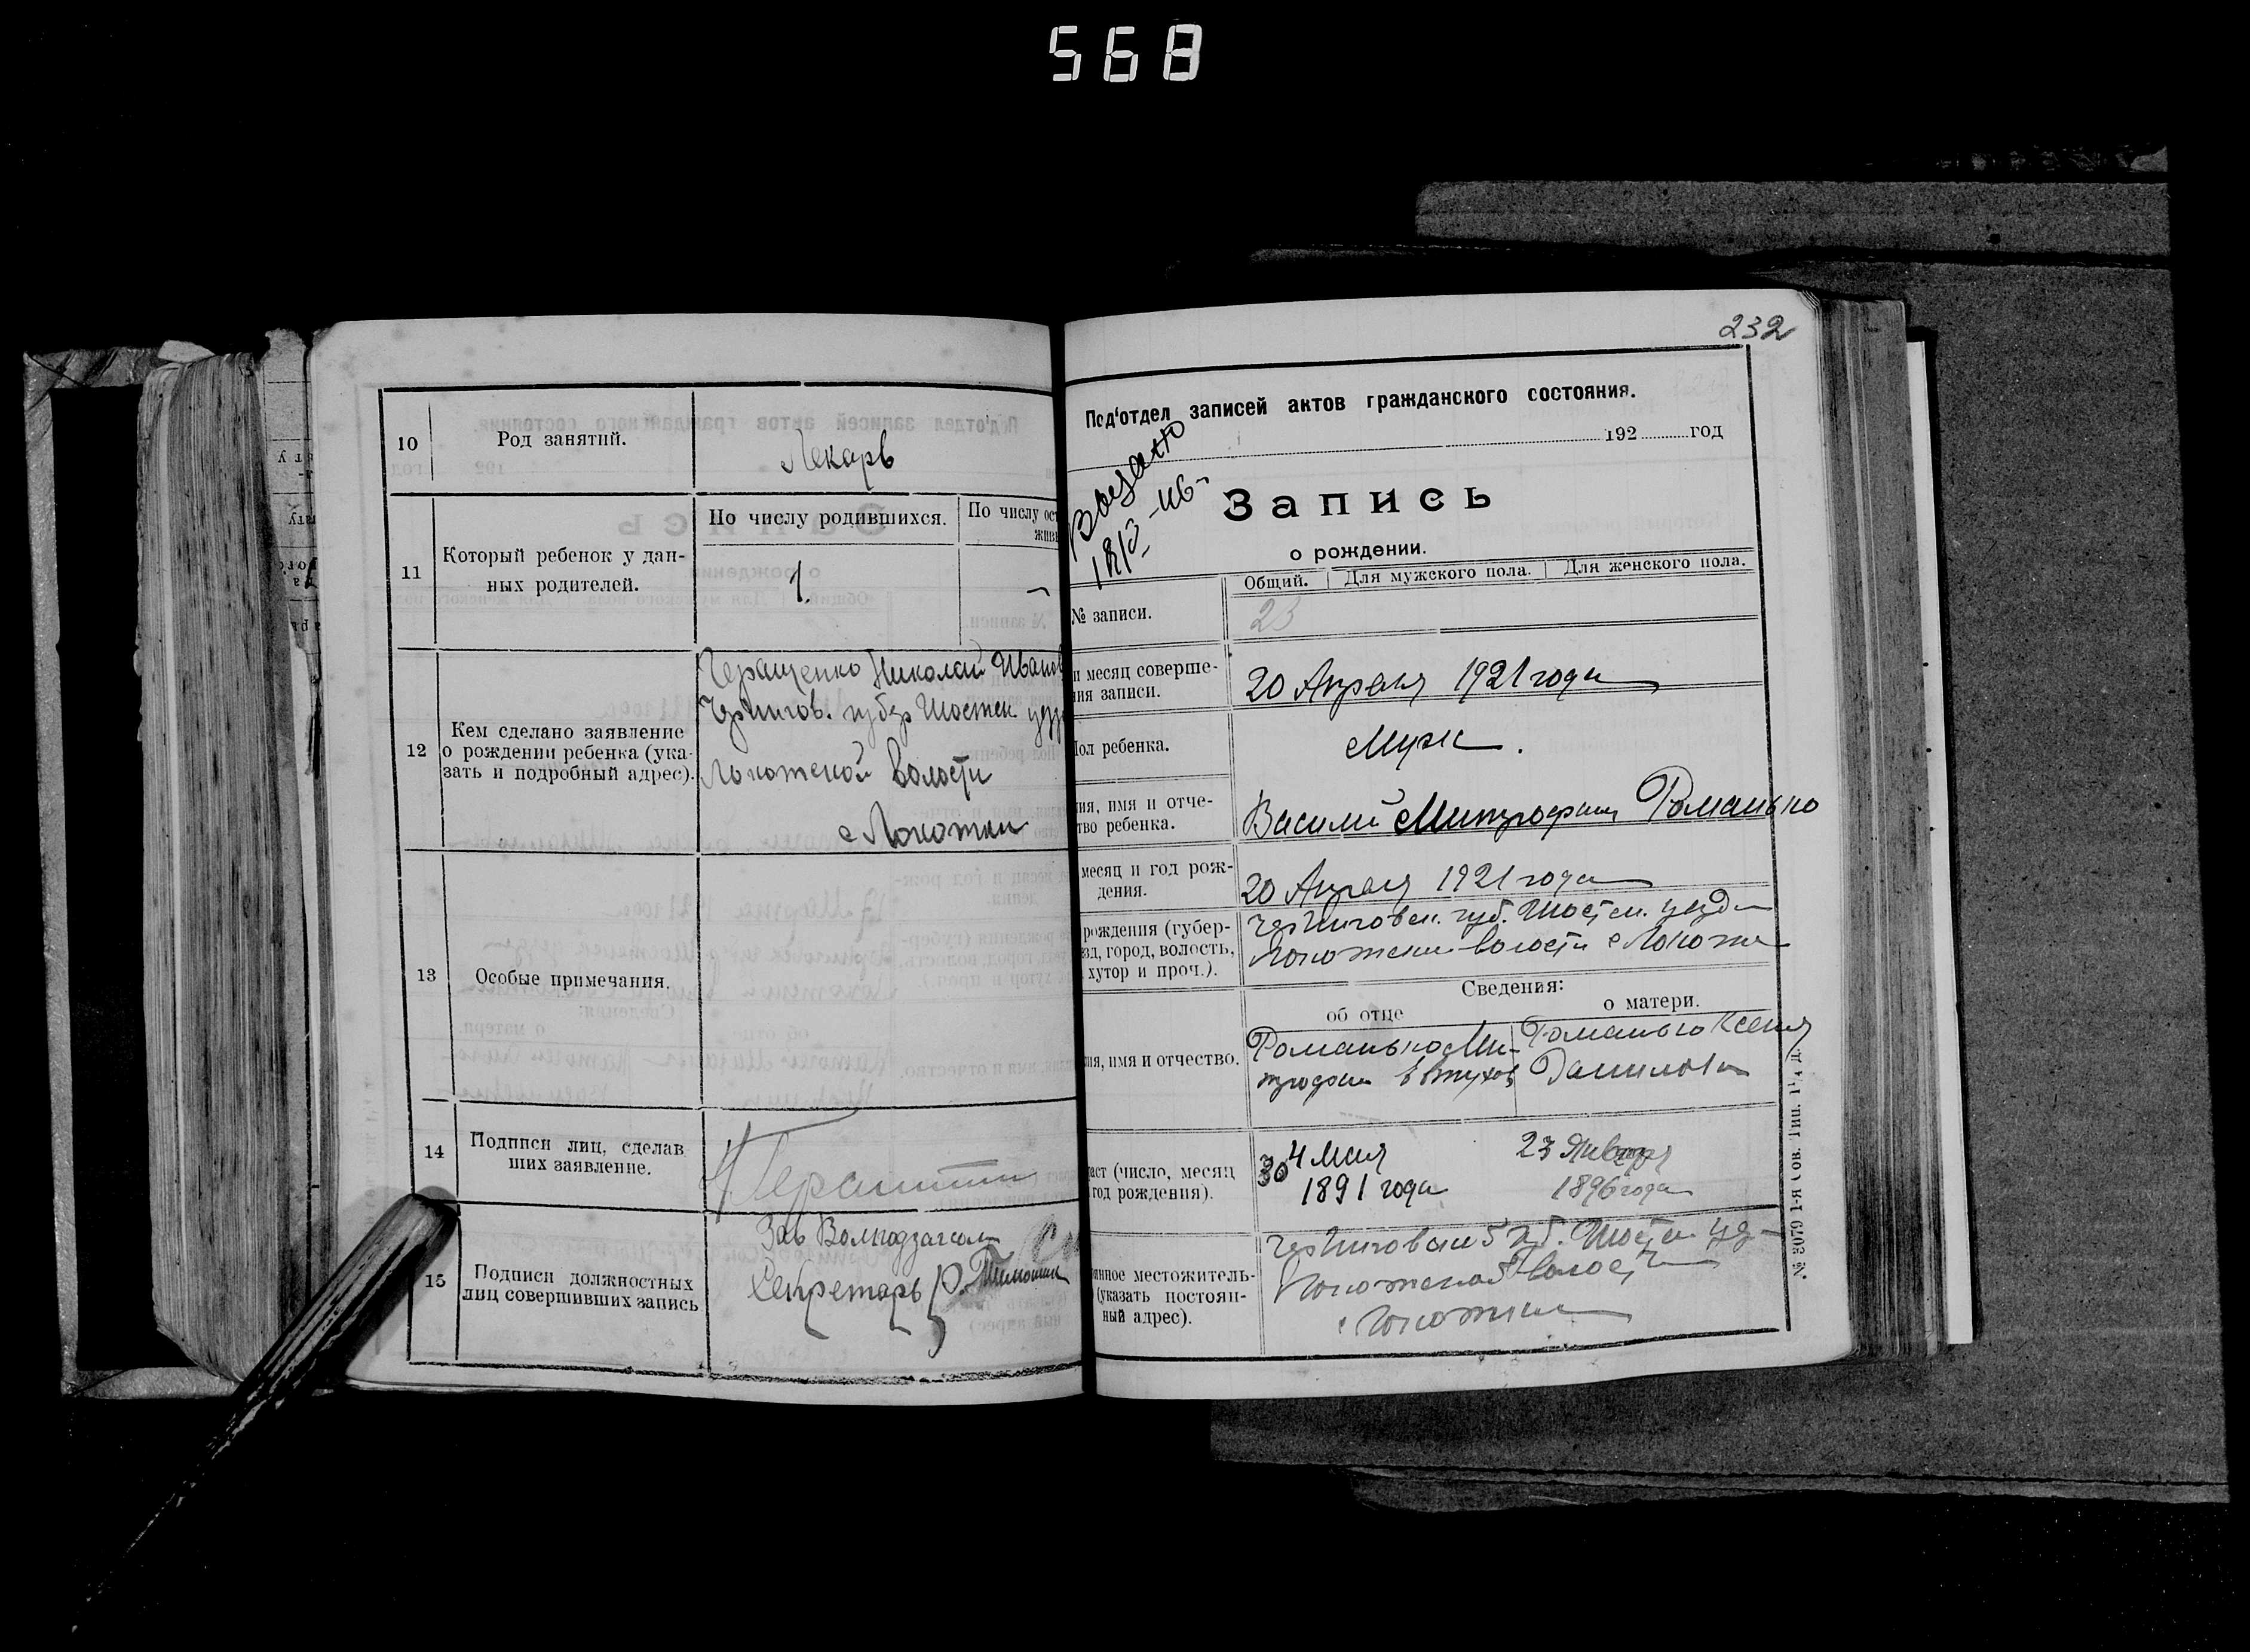 568
10
Род занятий.
Лекарь
11
Который ребенок у дан-
ных родителей.
По числу родившихся.
По числу ост
живы
1.
12
Кем сделано заявление
о рождении ребенка (ука-
зать и подробный адрес).
Геращенко Николай Иванов
Чернигов. губер Шостен. уезд
Локотской волости
с Локотки
13
Особые примечания.
14
Подписи лиц, сделав
ших заявление.
15
Подписи должностных
лиц совершивших запись
Зав
Секретарь
232
Под'отдел записей актов гражданского состояния.
192 год
Запись
о рождении.
Общий. Для мужского пола. Для женского пола.
№ записи.
23
и месяц соверше-
ния записи.
20 Апреля 1921 года
Пол ребенка.
Муж.
ия, имя и отче-
тво ребенка.
Василий Митрофан Романько
месяц и год рож-
дения.
20 Апреля 1921 года
рождения (губер-
зд, город, волость,
хутор и проч.).
Черниговск. губ. Шостен. уезда
волости с Локотки
Сведения:
об отце
о матери.
ия, имя и отчество.
Романько Ми-
трофан
Романько Ксения
Данилов
аст (число, месяц
год рождения).
30
4 Мая
1891 года
23 Января
1896 года
янное местожитель-
(указать постоян-
ный адрес).
Локотской волости
с Локотки
№ 3079 1-я Сов. Тип.